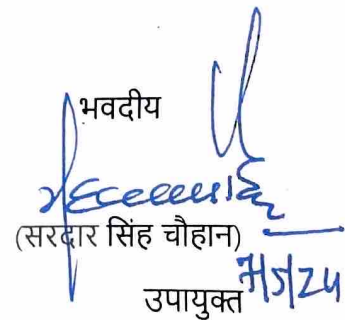 भवदीय
(सरदार सिंह चौहान)
उपायुक्त 7/5/24